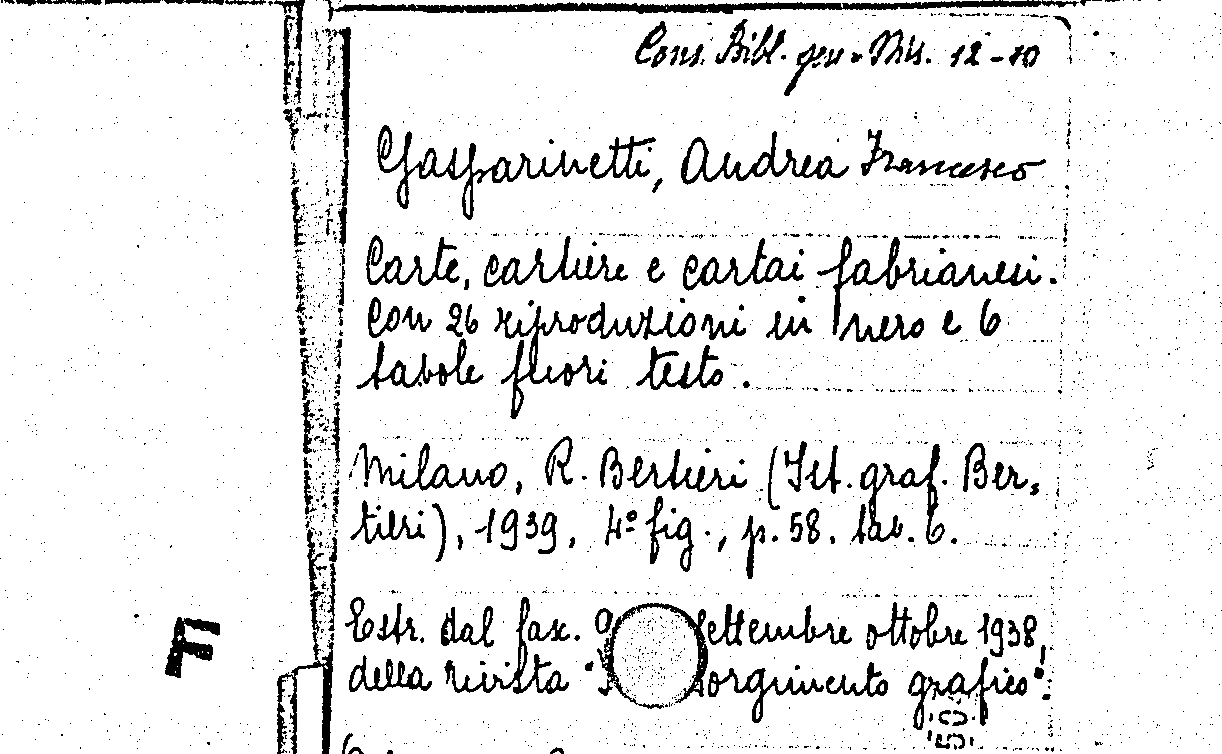 Cons. Bibl. gen. Mus. 12-10
Gasparinetti, Andrea Francesco
Carte, cartiere e cartai fabrianesi.
Con 26 riproduzioni in nero e 6
tavole fuori testo.
Milano, R. Bertieri (Ist. graf. Ber-
tieri), 1939, 4° fig., p. 58. tav. 6.
Estr. dal fax. 9 settembre ottobre 1938,
della rivista sorgimento grafico".
F